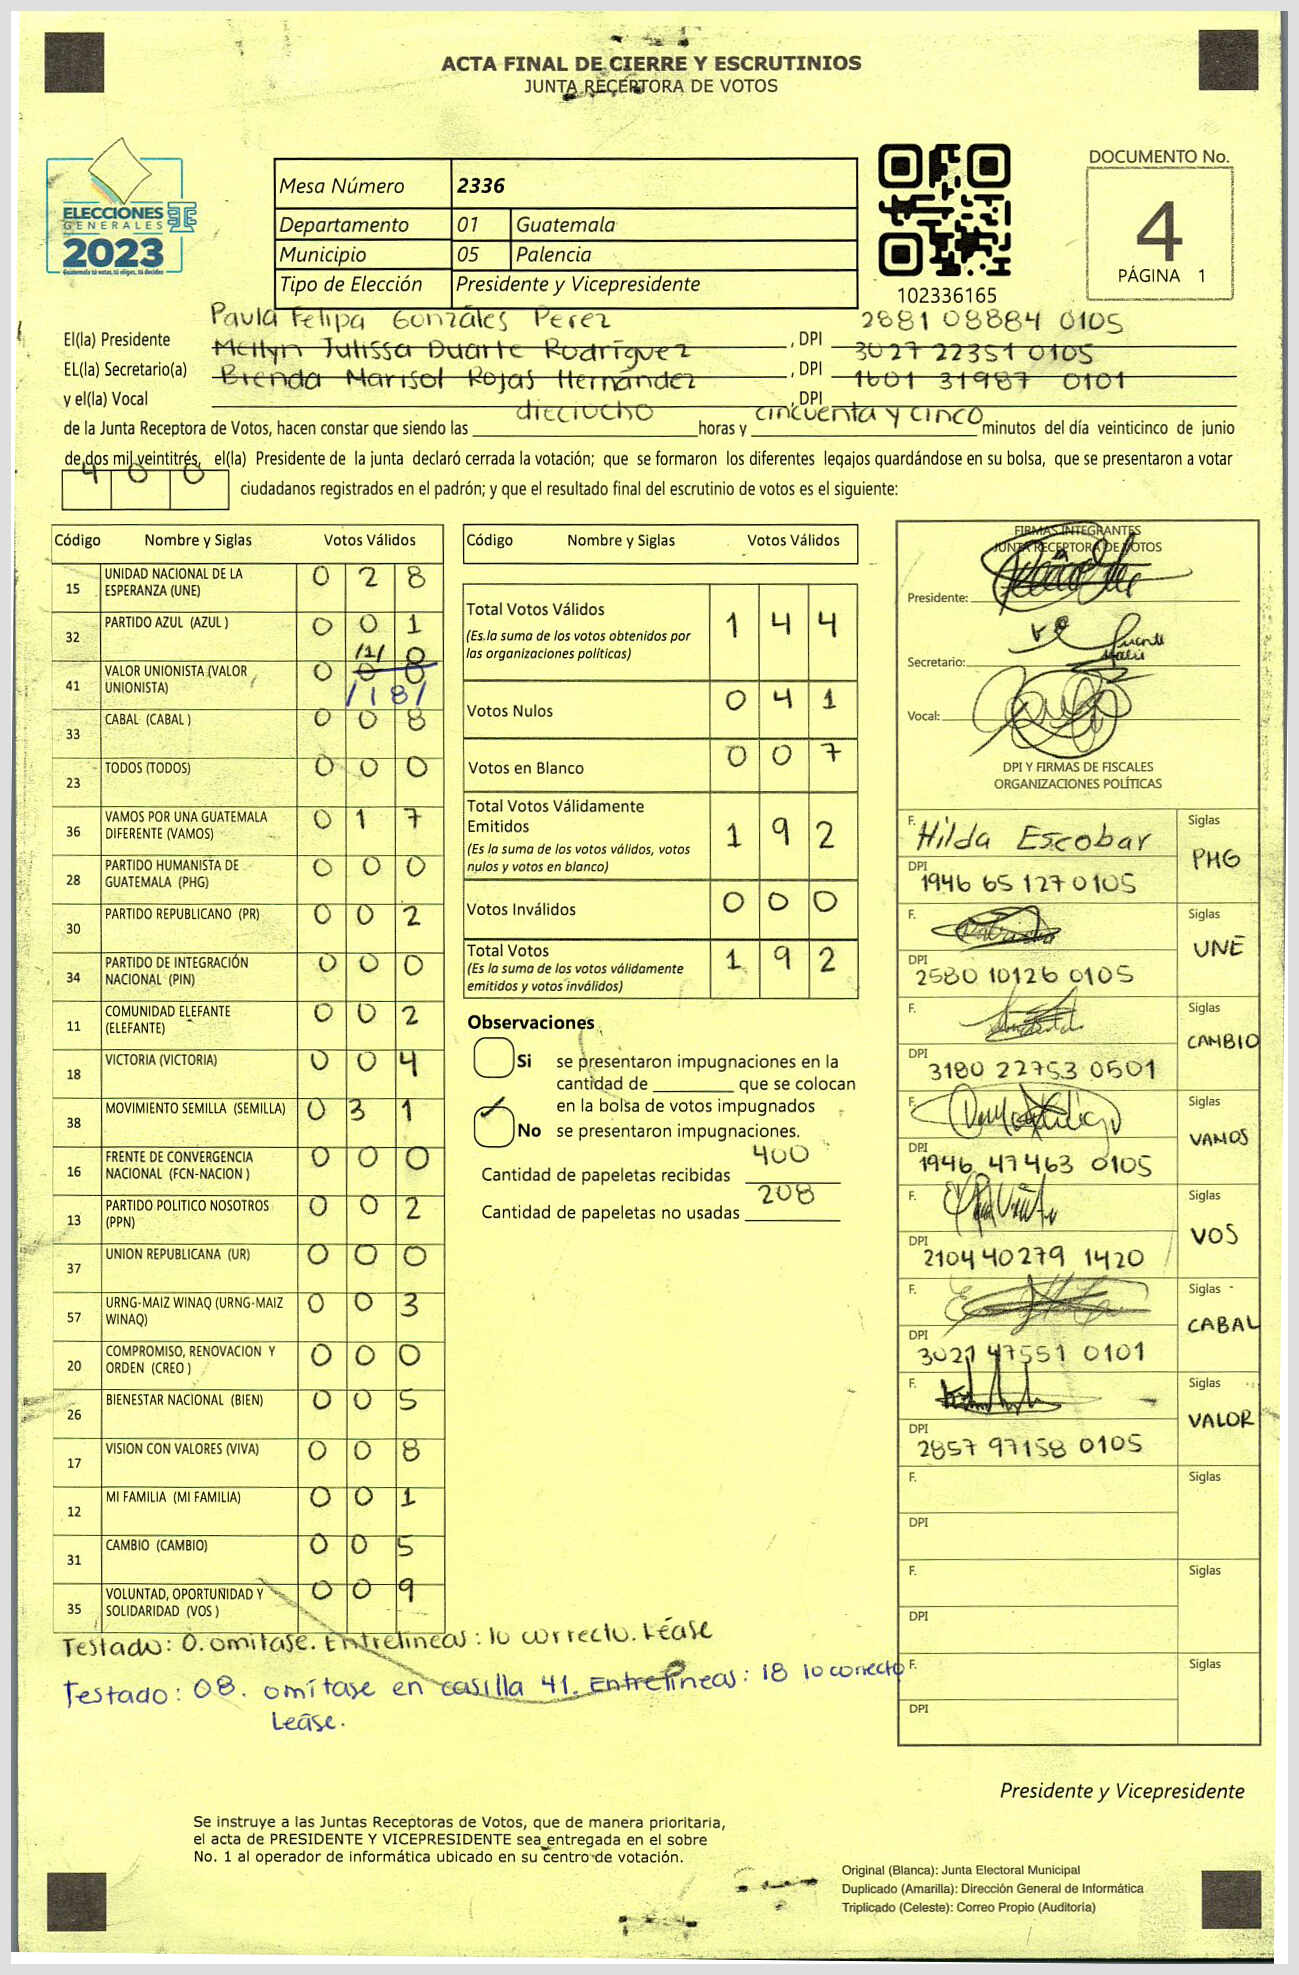 ACTA FINAL DE CIERRE Y ESCRUTINIOS
JUNTA RECEPTORA DE VOTOS
ELECCIONES
GENERALES
2023
Guatemala tú votas, tú eliges, tú decides
Mesa Número 2336
Departamento 01 Guatemala
Municipio 05 Palencia
Tipo de Elección Presidente y Vicepresidente
102336165
DOCUMENTO No.
4
PÁGINA 1
Paula Felipa Gonzáles Perez 2881 08884 0105
El(la) Presidente , DPI
Meilyn Julissa Duarte Rodríguez 3027 22351 0105
EL(la) Secretario(a) , DPI
Brenda Marisol Rojas Hernández 1601 31987 0101
y el(la) Vocal , DPI
de la Junta Receptora de Votos, hacen constar que siendo las dieciocho horas y cincuenta y cinco minutos del día veinticinco de junio
de dos mil veintitrés, el(la) Presidente de la junta declaró cerrada la votación; que se formaron los diferentes legajos guardándose en su bolsa, que se presentaron a votar
400 ciudadanos registrados en el padrón; y que el resultado final del escrutinio de votos es el siguiente:
Código Nombre y Siglas Votos Válidos
15 UNIDAD NACIONAL DE LA ESPERANZA (UNE) 0 2 8
32 PARTIDO AZUL (AZUL ) 0 0 1
41 VALOR UNIONISTA (VALOR UNIONISTA) 0 0 8 /1/ 0 /18/
33 CABAL (CABAL ) 0 0 8
23 TODOS (TODOS) 0 0 0
36 VAMOS POR UNA GUATEMALA DIFERENTE (VAMOS) 0 1 7
28 PARTIDO HUMANISTA DE GUATEMALA (PHG) 0 0 0
30 PARTIDO REPUBLICANO (PR) 0 0 2
34 PARTIDO DE INTEGRACIÓN NACIONAL (PIN) 0 0 0
11 COMUNIDAD ELEFANTE (ELEFANTE) 0 0 2
18 VICTORIA (VICTORIA) 0 0 4
38 MOVIMIENTO SEMILLA (SEMILLA) 0 3 1
16 FRENTE DE CONVERGENCIA NACIONAL (FCN-NACION ) 0 0 0
13 PARTIDO POLITICO NOSOTROS (PPN) 0 0 2
37 UNION REPUBLICANA (UR) 0 0 0
57 URNG-MAIZ WINAQ (URNG-MAIZ WINAQ) 0 0 3
20 COMPROMISO, RENOVACION Y ORDEN (CREO ) 0 0 0
26 BIENESTAR NACIONAL (BIEN) 0 0 5
17 VISION CON VALORES (VIVA) 0 0 8
12 MI FAMILIA (MI FAMILIA) 0 0 1
31 CAMBIO (CAMBIO) 0 0 5
35 VOLUNTAD, OPORTUNIDAD Y SOLIDARIDAD (VOS ) 0 0 9
Testado: 0. omitase. Entrelineas: 10 correcto. Léase
Testado: 08. omítase en casilla 41. Entrelineas: 18 lo correcto
Leáse.
Código Nombre y Siglas Votos Válidos
Total Votos Válidos 1 4 4
(Es la suma de los votos obtenidos por
las organizaciones políticas)
Votos Nulos 0 4 1
Votos en Blanco 0 0 7
Total Votos Válidamente
Emitidos 1 9 2
(Es la suma de los votos válidos, votos
nulos y votos en blanco)
Votos Inválidos 0 0 0
Total Votos 1 9 2
(Es la suma de los votos válidamente
emitidos y votos inválidos)
Observaciones
Si se presentaron impugnaciones en la
cantidad de ________ que se colocan
en la bolsa de votos impugnados
No se presentaron impugnaciones.
Cantidad de papeletas recibidas 400
Cantidad de papeletas no usadas 208
FIRMAS INTEGRANTES
JUNTA RECEPTORA DE VOTOS
Presidente:
Secretario:
Vocal:
DPI Y FIRMAS DE FISCALES
ORGANIZACIONES POLÍTICAS
F. Hilda Escobar Siglas PHG
DPI 1946 65 127 0105
F. Siglas UNE
DPI 2580 10126 0105
F. Siglas CAMBIO
DPI 3180 22753 0501
F. Siglas VAMOS
DPI 1946 47463 0105
F. Siglas VOS
DPI 2104 40279 1420
F. Siglas CABAL
DPI 3021 47551 0101
F. Siglas VALOR
DPI 2857 97158 0105
F. Siglas
DPI
F. Siglas
DPI
F. Siglas
DPI
Presidente y Vicepresidente
Se instruye a las Juntas Receptoras de Votos, que de manera prioritaria,
el acta de PRESIDENTE Y VICEPRESIDENTE sea entregada en el sobre
No. 1 al operador de informática ubicado en su centro de votación.
Original (Blanca): Junta Electoral Municipal
Duplicado (Amarilla): Dirección General de Informática
Triplicado (Celeste): Correo Propio (Auditoría)